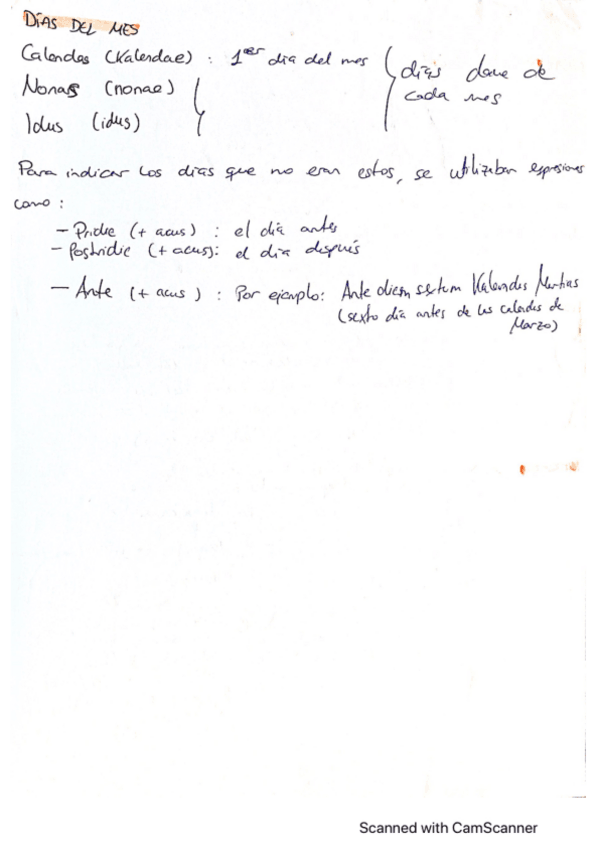 DÍAS DEL MES
Calendas (Kalendae) : 1er día del mes
Nonas (nonae)
Idus (idus)
días clave de
cada mes
Para indicar los días que no eran estos, se utilizaban expresiones
como :
- Pridie (+ acus) : el día antes
- Postridie (+ acus): el día después
- Ante (+ acus) : Por ejemplo: Ante diem sextum Kalendas Martias
(sexto día antes de las calendas de
Marzo)
Scanned with CamScanner